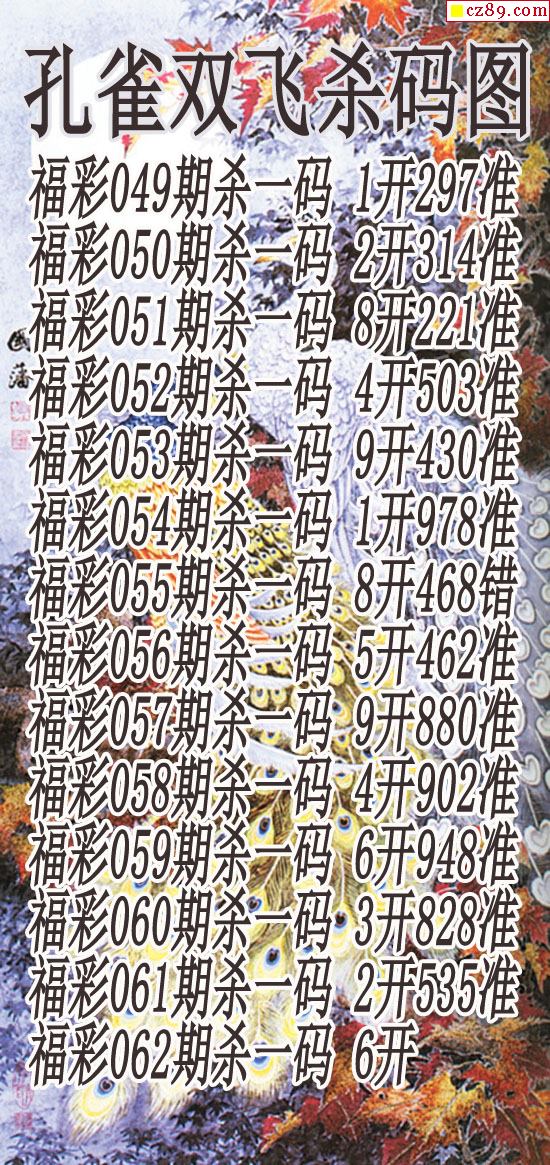 cz89.com
孔雀双飞杀码图
福彩049期杀一码 1开297准
福彩050期杀一码 2开314准
福彩051期杀一码 8开221准
福彩052期杀一码 4开503准
福彩053期杀一码 9开430准
福彩054期杀一码 1开978准
福彩055期杀一码 8开468错
福彩056期杀一码 5开462准
福彩057期杀一码 9开880准
福彩058期杀一码 4开902准
福彩059期杀一码 6开948准
福彩060期杀一码 3开828准
福彩061期杀一码 2开535准
福彩062期杀一码 6开